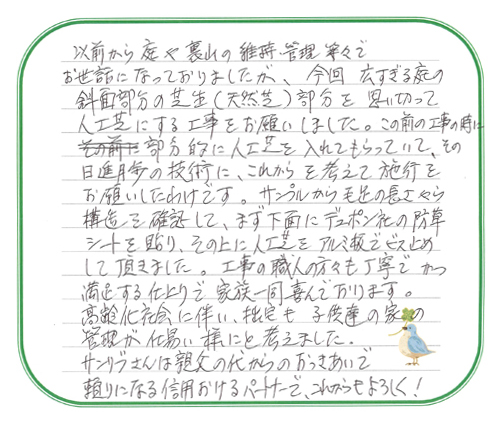 以前から庭や裏山の維持・管理等々で
お世話になっておりましたが、今回広すぎる庭の
斜面部分の芝生(天然芝)部分を思い切って
人工芝にする工事をお願いしました。この前の工事の時に
その前に部分的に人工芝を入れてもらっていて、その
日進月歩の技術に、これからを考えて施行を
お願いしたわけです。サンプルから毛足の長さやら
構造を確認して、まず下面にデュポン社の防草
シートを貼り、その上に人工芝をアルミ板でビス止め
して頂きました。工事の職人の方々も丁寧でかつ
満足する仕上りで家族一同喜んでおります。
高齢化社会に伴い、拙宅も子供達の家の
管理が仕易い様にと考えました。
サンリブさんは親父の代からのおつきあいで
頼りになる信用おけるパートナーで、これからもよろしく!